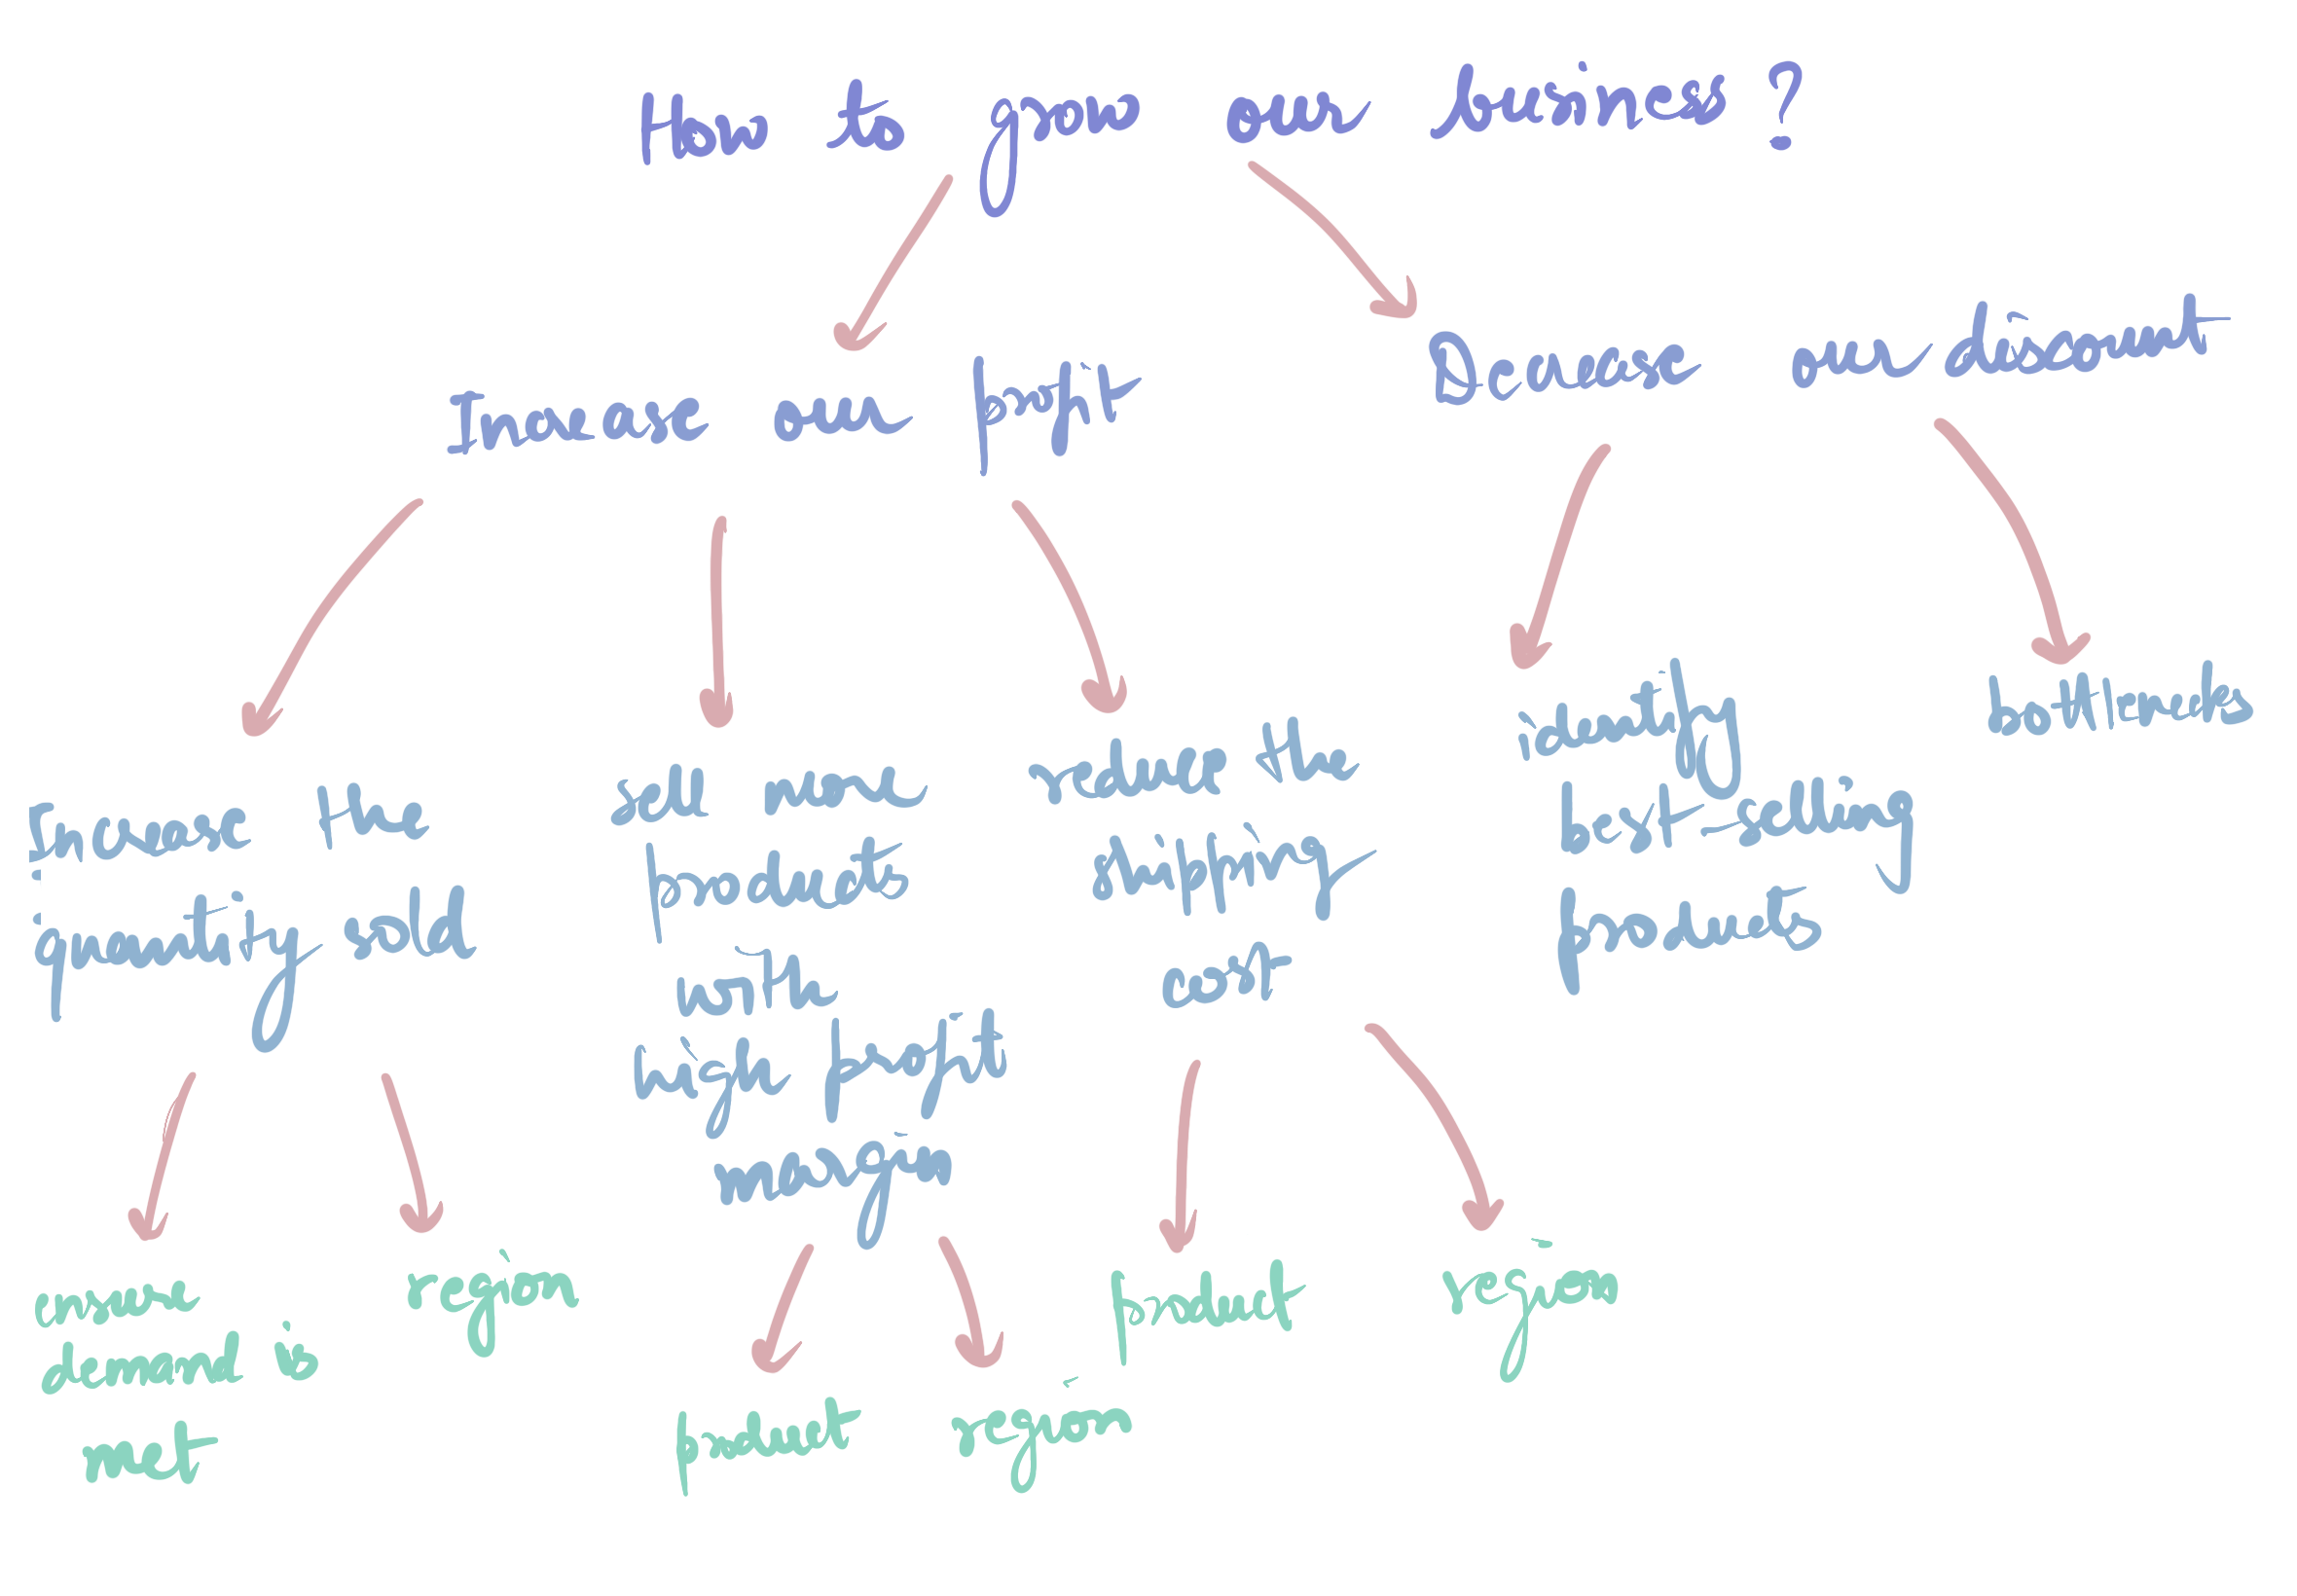 How to grow our business?
Increase our profit
Decrease our discount
Increase the
quantity sold
sell more
products
with
high profit
margin
reduce the
shipping
cost
identify
best-selling
products
bottlenecks
ensure
demand is
met
region
product
region
product
region